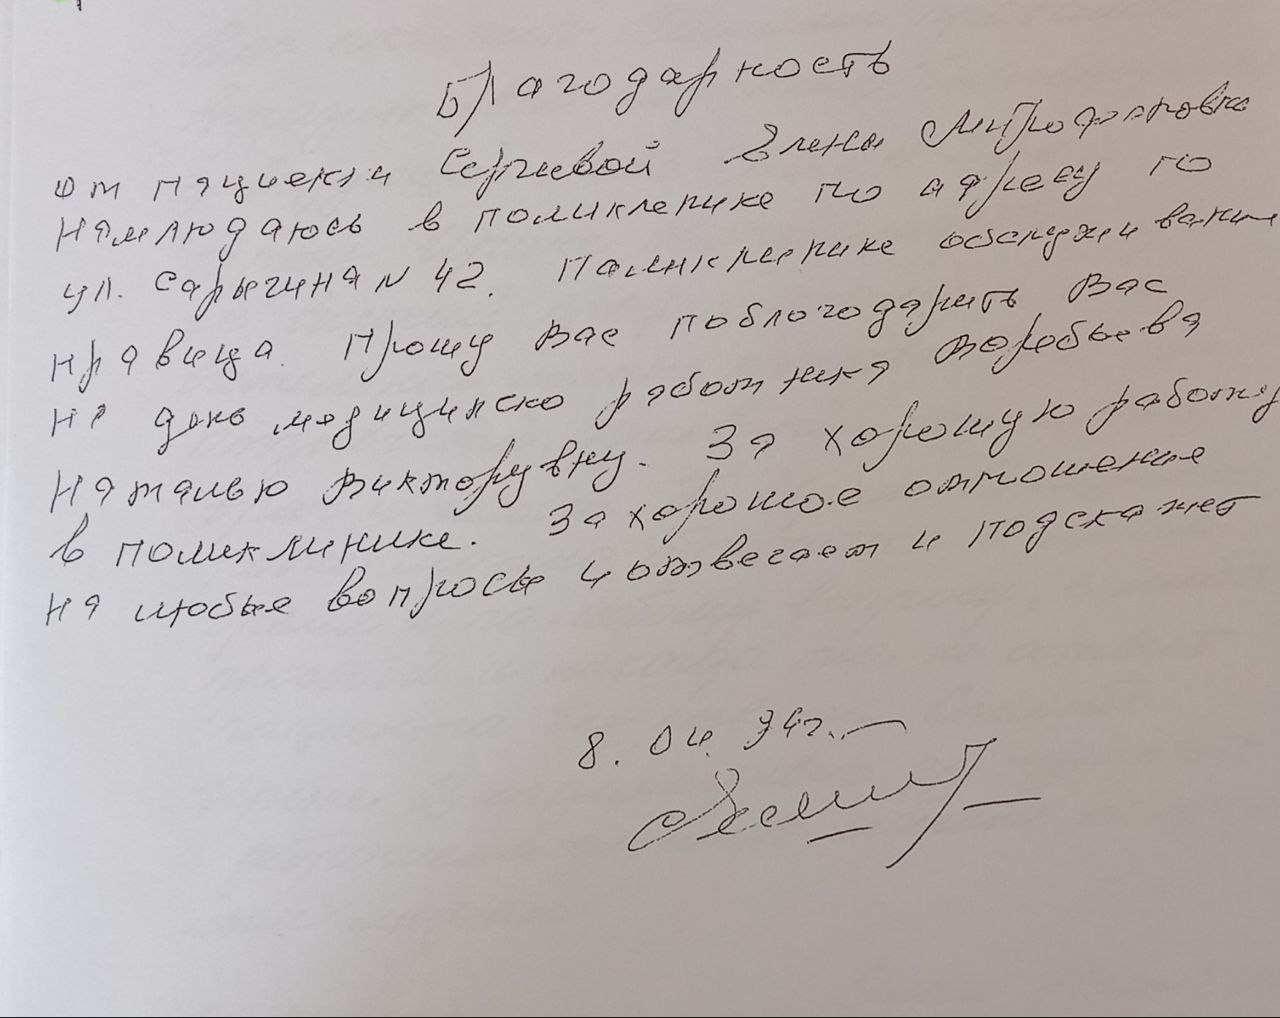 Благодарность
от пациента Сергиевой Элены Митрофановне
Нямлюдаюсь в поликленике по адресу по
ул. Сарыгиня N 42. Полинклинике обслуживание
нравица. Прошу Вас поблогодарить Вас
на день медицинско работника Воробьева
Наталью Викторувну. За хорошую работу
в поликлинике. За хорошое отношение
на любые вопросы и отвечает и подскажет
8. 04.